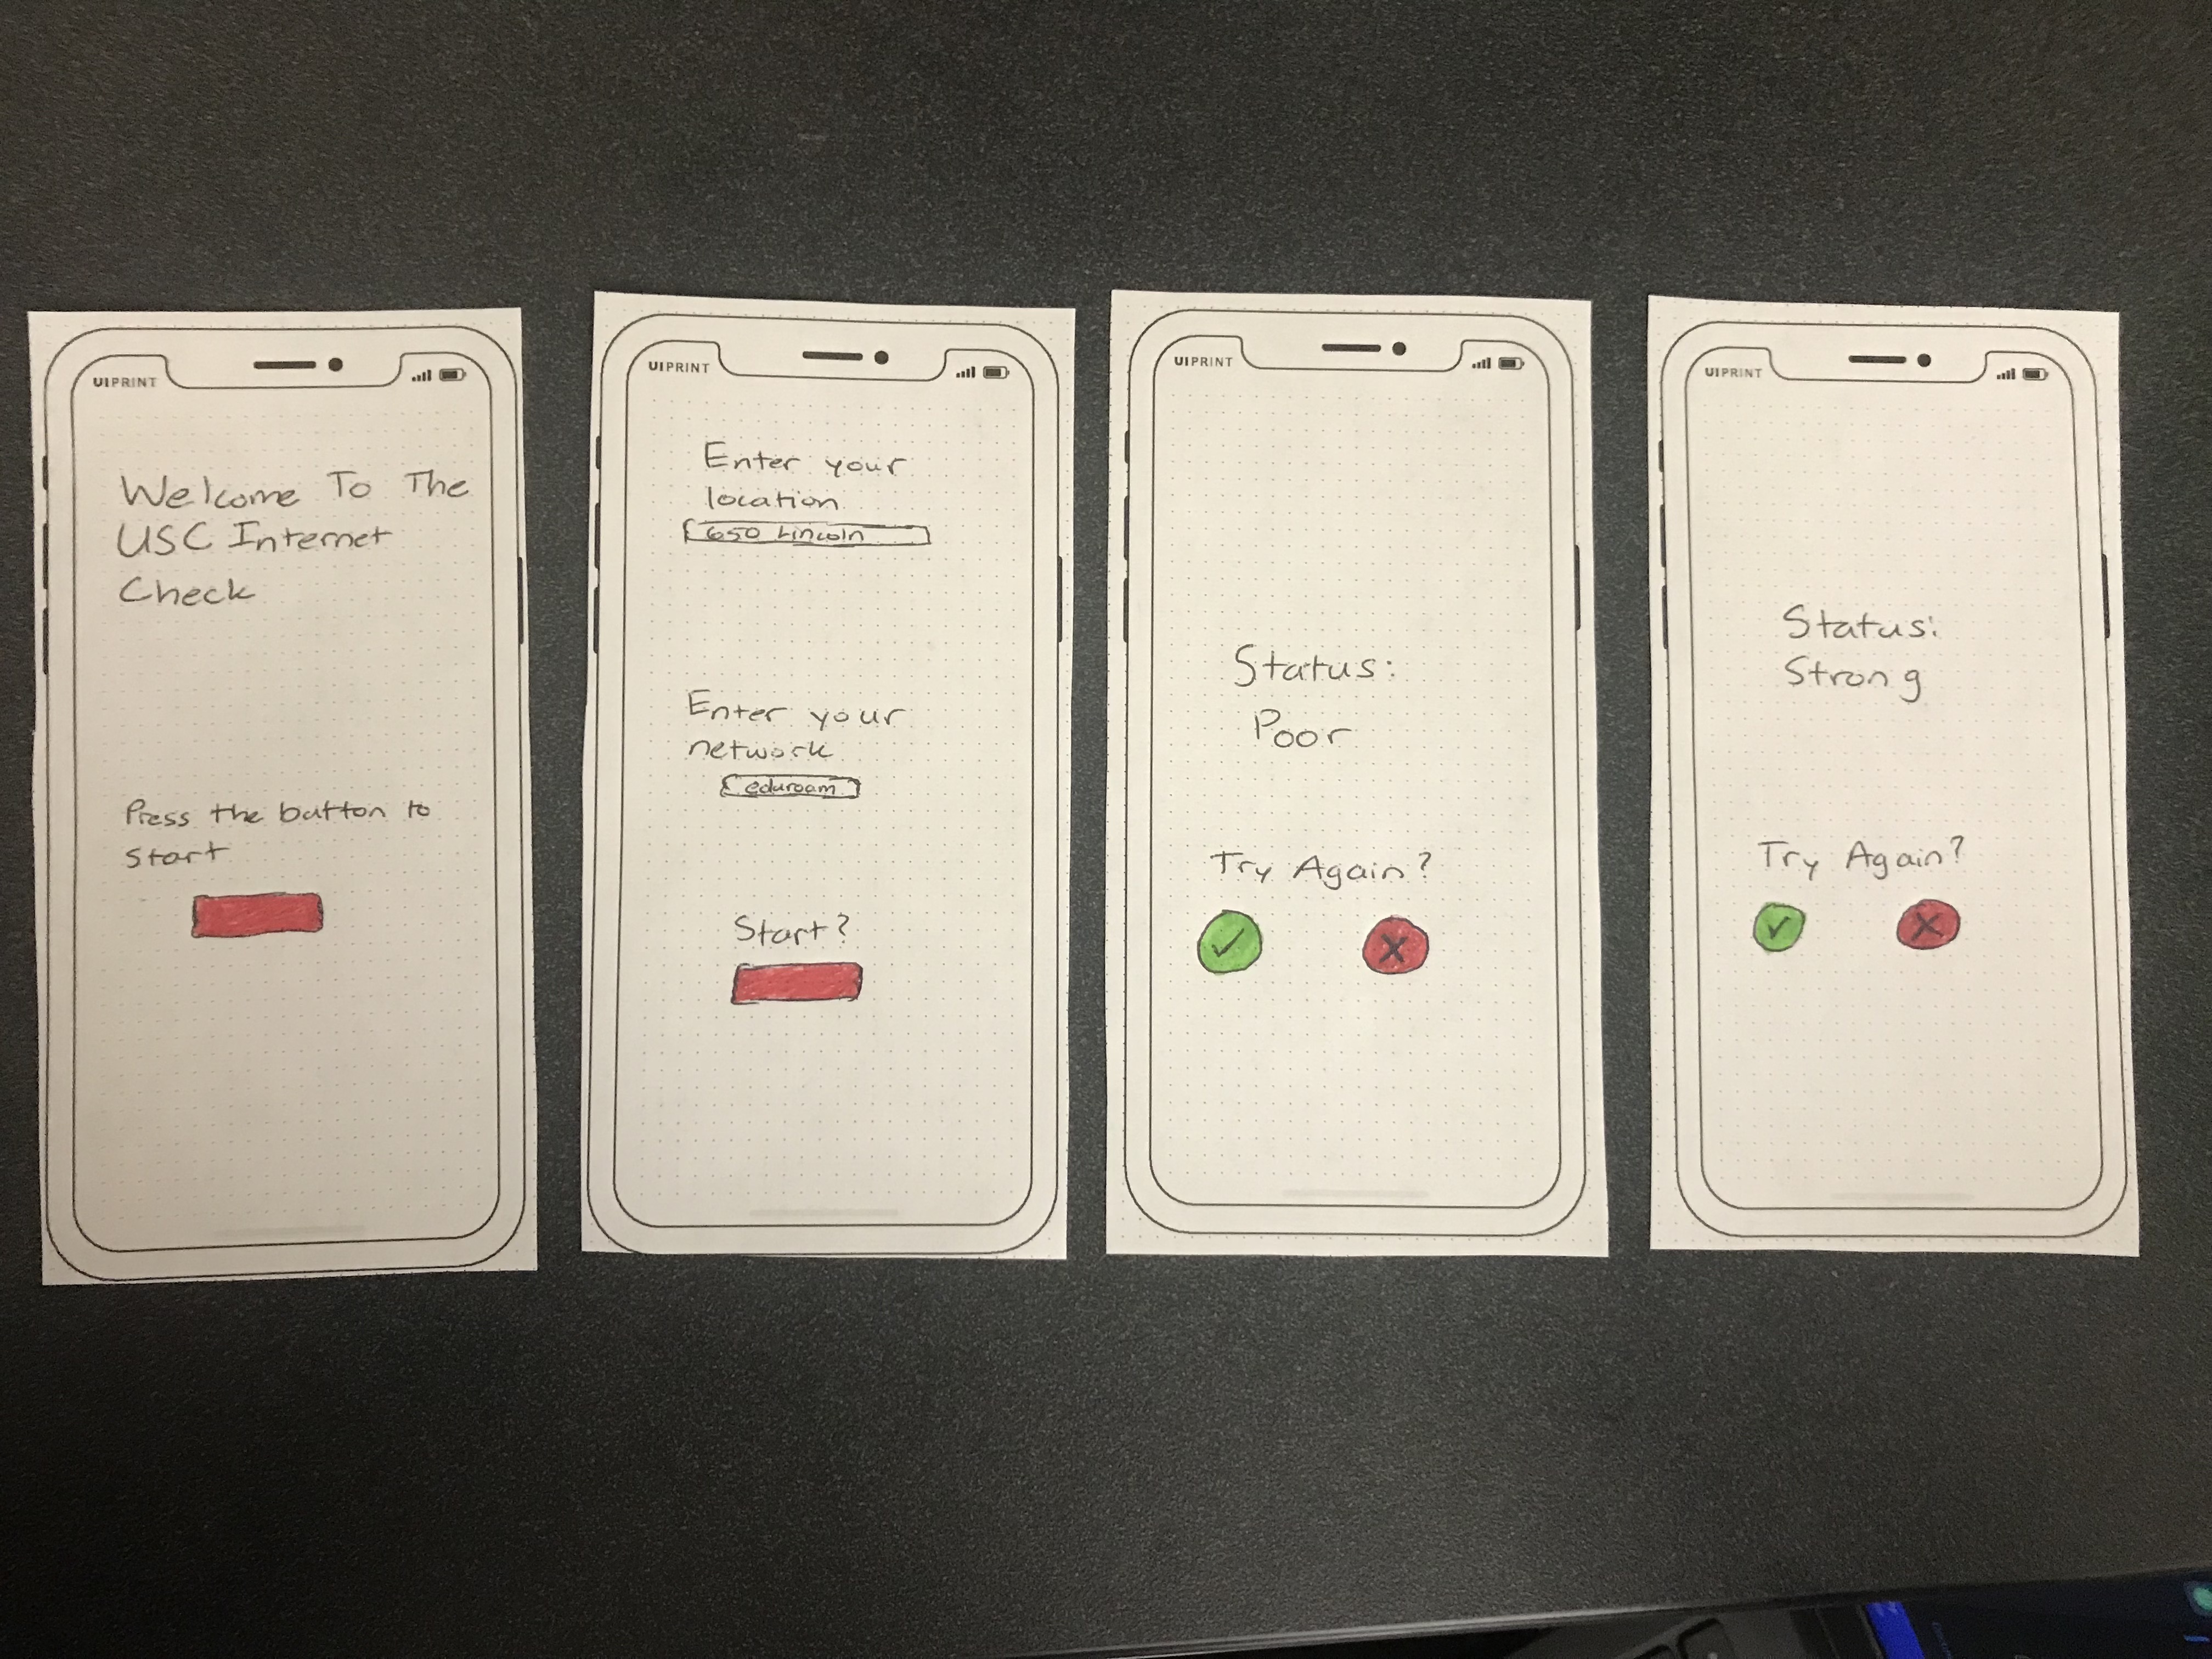 UIPRINT
Welcome To The
USC Internet
Check
Press the button to
Start
UIPRINT
Enter your
location
650 Lincoln
Enter your
network
eduroam
Start?
UIPRINT
Status:
Poor
Try Again?
UIPRINT
Status:
Strong
Try Again?